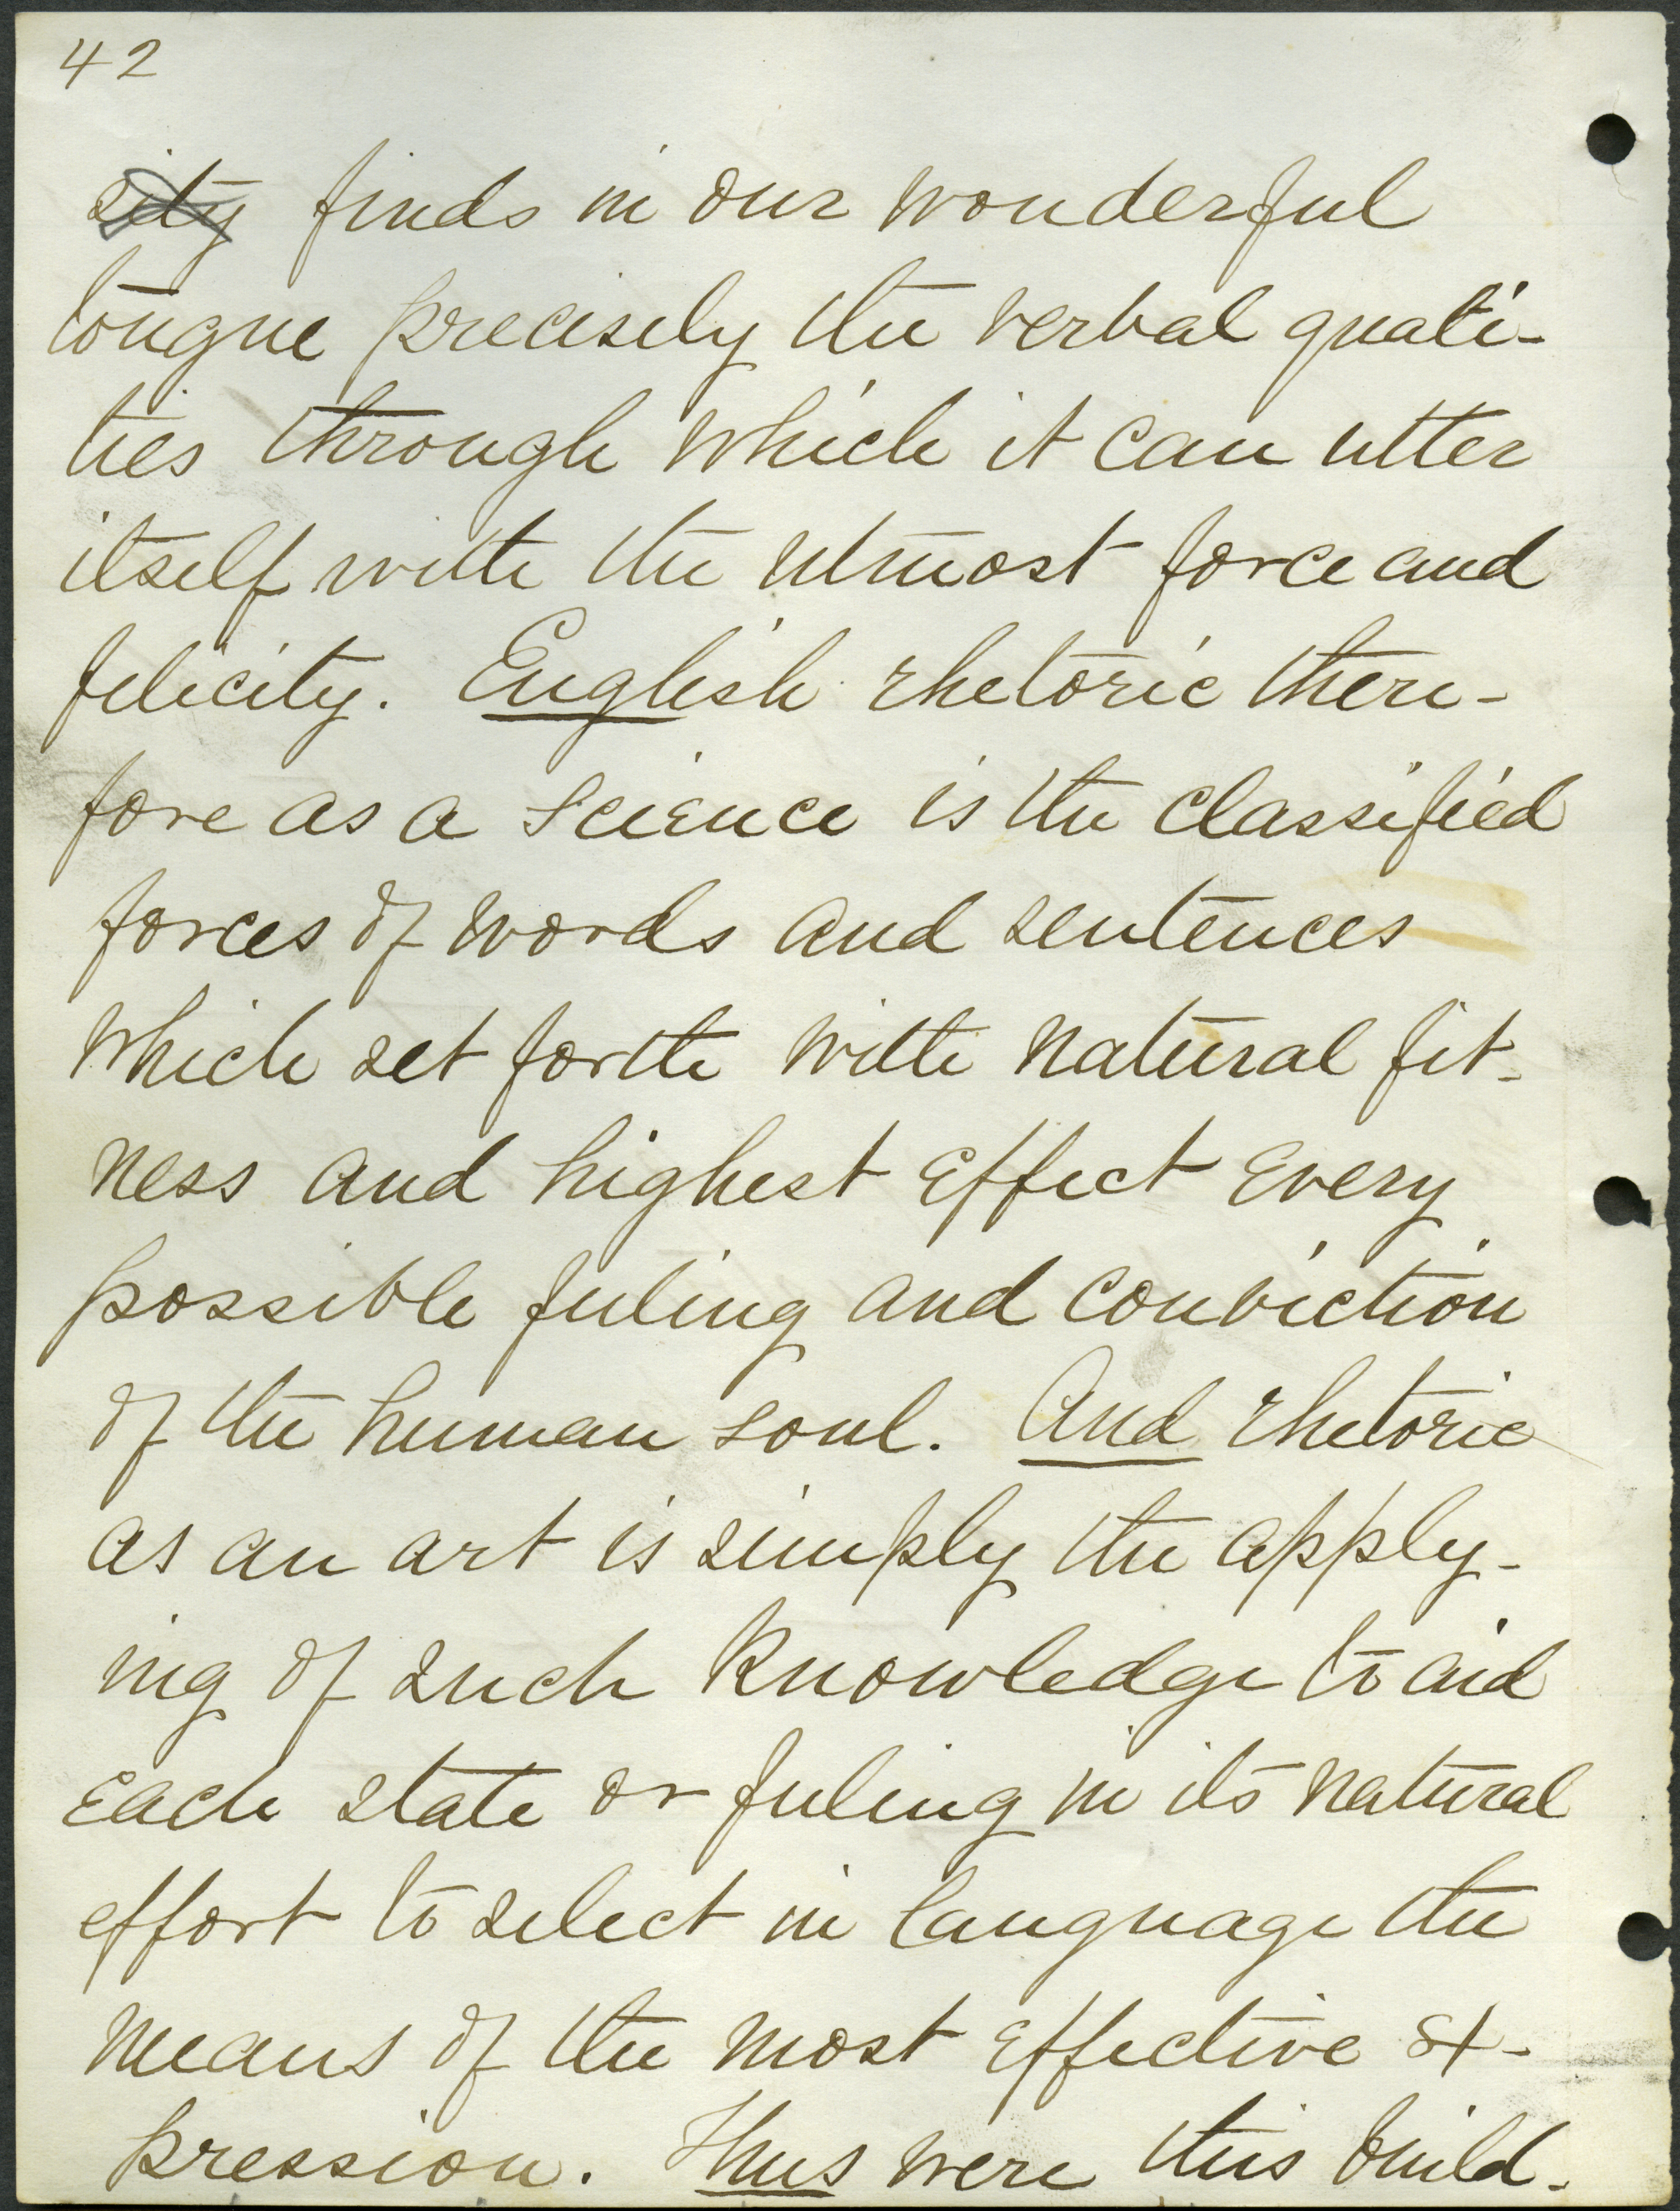 42
sity finds in our wonderful
tongue precisely the verbal quali-
ties through which it can utter
itself with the utmost force and
felicity. English rhetoric there-
fore as a science is the classified
forces of words and sentences
which set forth with natural fit-
ness and highest effect every
possible feeling and conviction
of the human soul. And rhetoric
as an art is simply the apply-
ing of such knowledge to aid
each state or feeling in its natural
effort to select in language the
means of the most effective ex-
pression. Thus were this build-